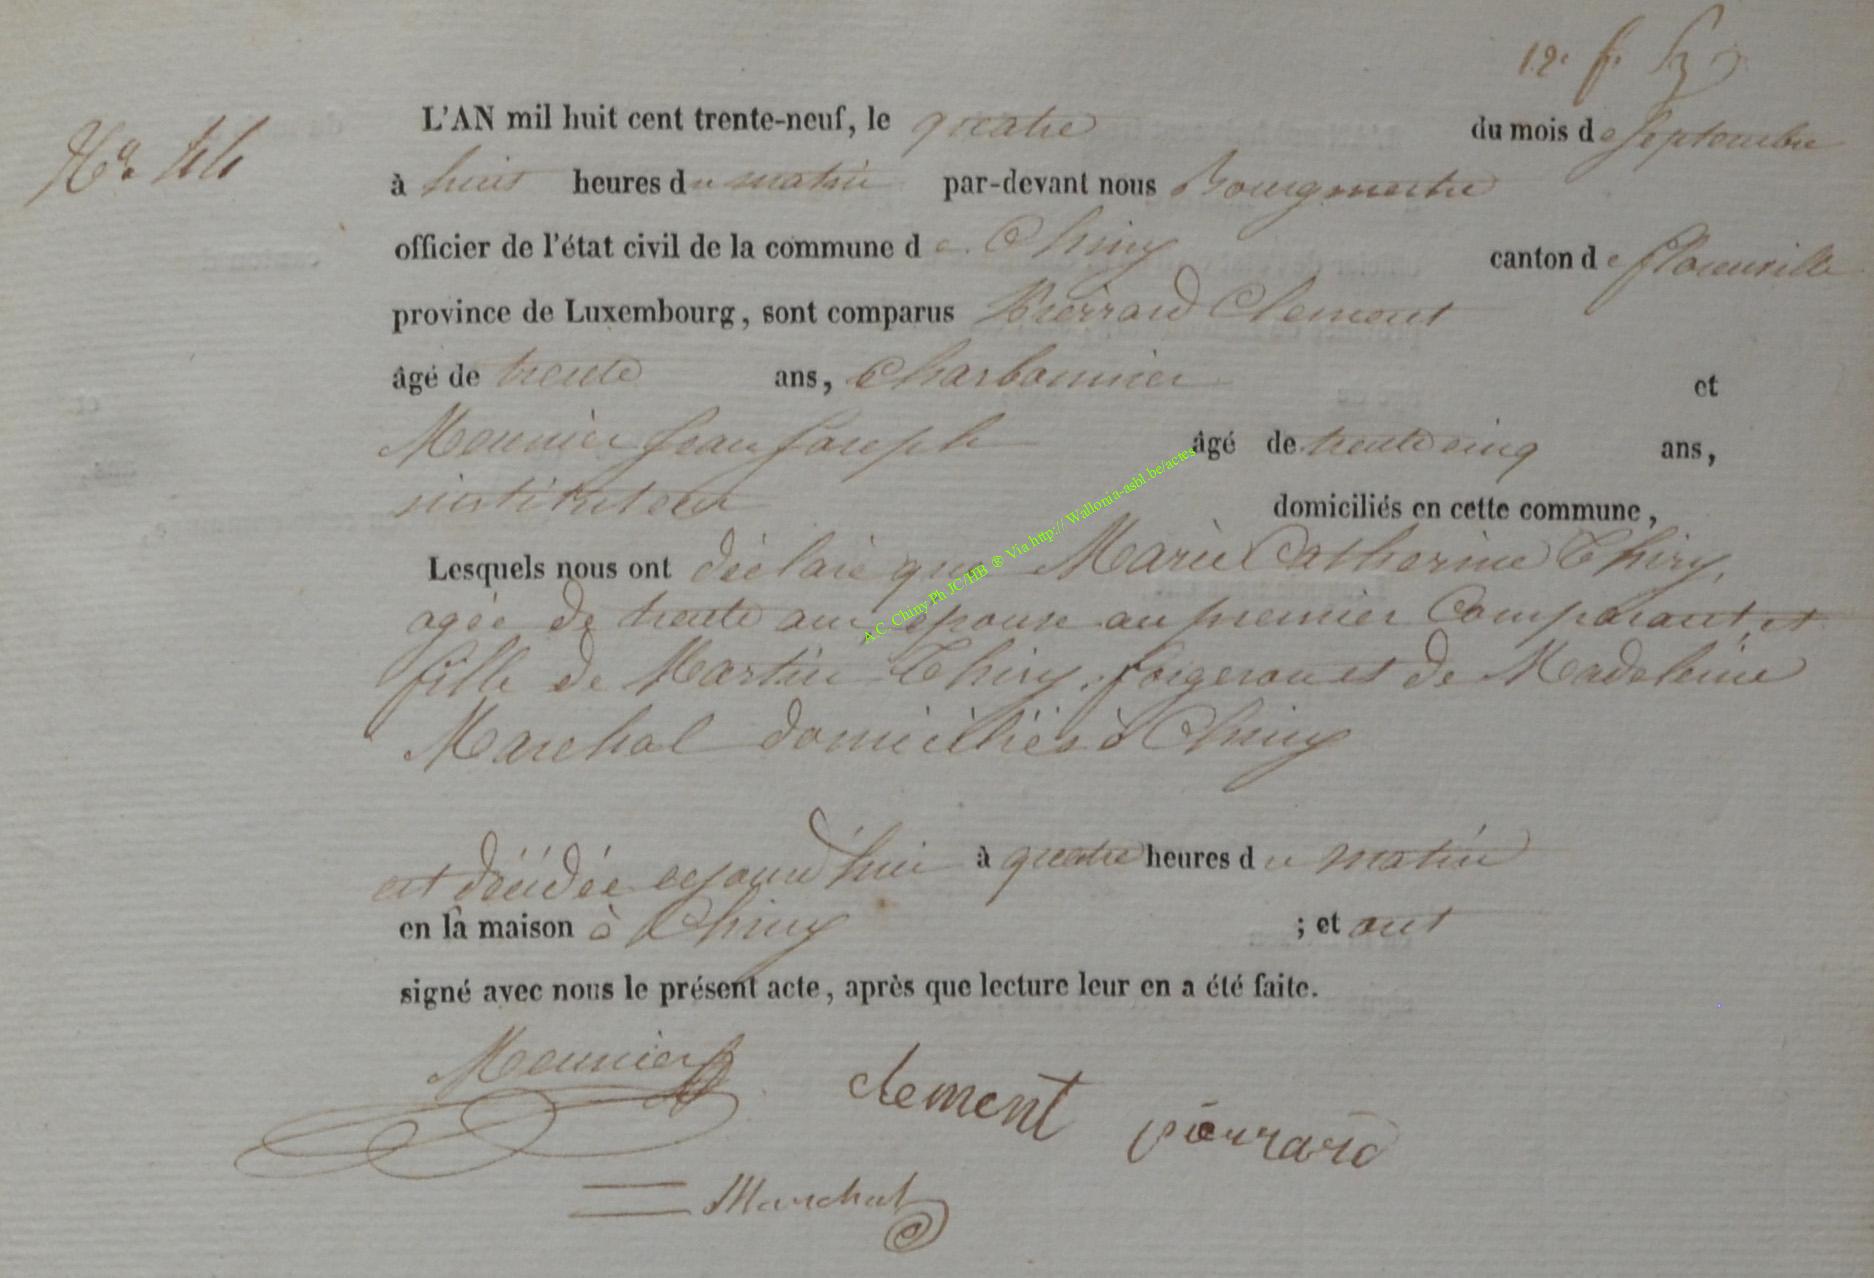 12e f.
L'AN mil huit cent trente-neuf, le quatre du mois de Septembre
à huit heures du matin par-devant nous Bourgmestre
officier de l'état civil de la commune de Chiny canton de florenville
province de Luxembourg, sont comparus Pierrard Clement
âgé de trente ans, charbonnier et
Meunier Jean Joseph âgé de trente cinq ans,
instituteur domiciliés en cette commune,
Lesquels nous ont déclaré que Marie Catherine Thiry,
agée de trente ans épouse au premier Comparant et
fille de Martin Thiry, forgeron et de Madeleine
Marchal domiciliés à Chiny
est décédée cejourd'hui à quatre heures du matin
en la maison à Chiny ; et ont
signé avec nous le présent acte, après que lecture leur en a été faite.
Meunier
clement pierrard
Marchal
A.C. Chiny Ph JC/HB ® Via http:// Wallonia-asbl.be/actes